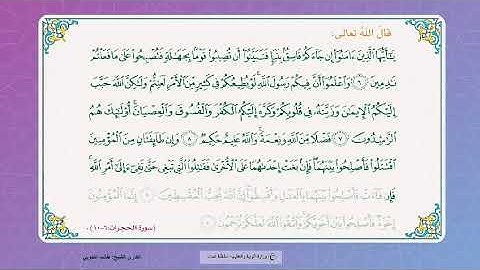 قَالَ اللَّهُ تَعَالَى:
يَٰٓأَيُّهَا ٱلَّذِينَ ءَامَنُوٓا۟ إِن جَآءَكُمْ فَاسِقٌۢ بِنَبَإٍ فَتَبَيَّنُوٓا۟ أَن تُصِيبُوا۟ قَوْمًۢا بِجَهَٰلَةٍ فَتُصْبِحُوا۟ عَلَىٰ مَا فَعَلْتُمْ
نَٰدِمِينَ ٦ وَٱعْلَمُوٓا۟ أَنَّ فِيكُمْ رَسُولَ ٱللَّهِ لَوْ يُطِيعُكُمْ فِى كَثِيرٍ مِّنَ ٱلْأَمْرِ لَعَنِتُّمْ وَلَٰكِنَّ ٱللَّهَ حَبَّبَ
إِلَيْكُمُ ٱلْإِيمَٰنَ وَزَيَّنَهُۥ فِى قُلُوبِكُمْ وَكَرَّهَ إِلَيْكُمُ ٱلْكُفْرَ وَٱلْفُسُوقَ وَٱلْعِصْيَانَ أُو۟لَٰٓئِكَ هُمُ
ٱلرَّٰشِدُونَ ٧ فَضْلًا مِّنَ ٱللَّهِ وَنِعْمَةً وَٱللَّهُ عَلِيمٌ حَكِيمٌ ٨ وَإِن طَآئِفَتَانِ مِنَ ٱلْمُؤْمِنِينَ
ٱقْتَتَلُوا۟ فَأَصْلِحُوا۟ بَيْنَهُمَا فَإِنۢ بَغَتْ إِحْدَىٰهُمَا عَلَى ٱلْأُخْرَىٰ فَقَٰتِلُوا۟ ٱلَّتِى تَبْغِى حَتَّىٰ تَفِىٓءَ إِلَىٰٓ أَمْرِ ٱللَّهِ
فَإِن فَآءَتْ فَأَصْلِحُوا۟ بَيْنَهُمَا بِٱلْعَدْلِ وَأَقْسِطُوٓا۟ إِنَّ ٱللَّهَ يُحِبُّ ٱلْمُقْسِطِينَ ٩ إِنَّمَا ٱلْمُؤْمِنُونَ
إِخْوَةٌ فَأَصْلِحُوا۟ بَيْنَ أَخَوَيْكُمْ وَٱتَّقُوا۟ ٱللَّهَ لَعَلَّكُمْ تُرْحَمُونَ ١٠
(سورة الحجرات:٦-١٠)
وزارة التربية والتعليم - سلطنة عمان